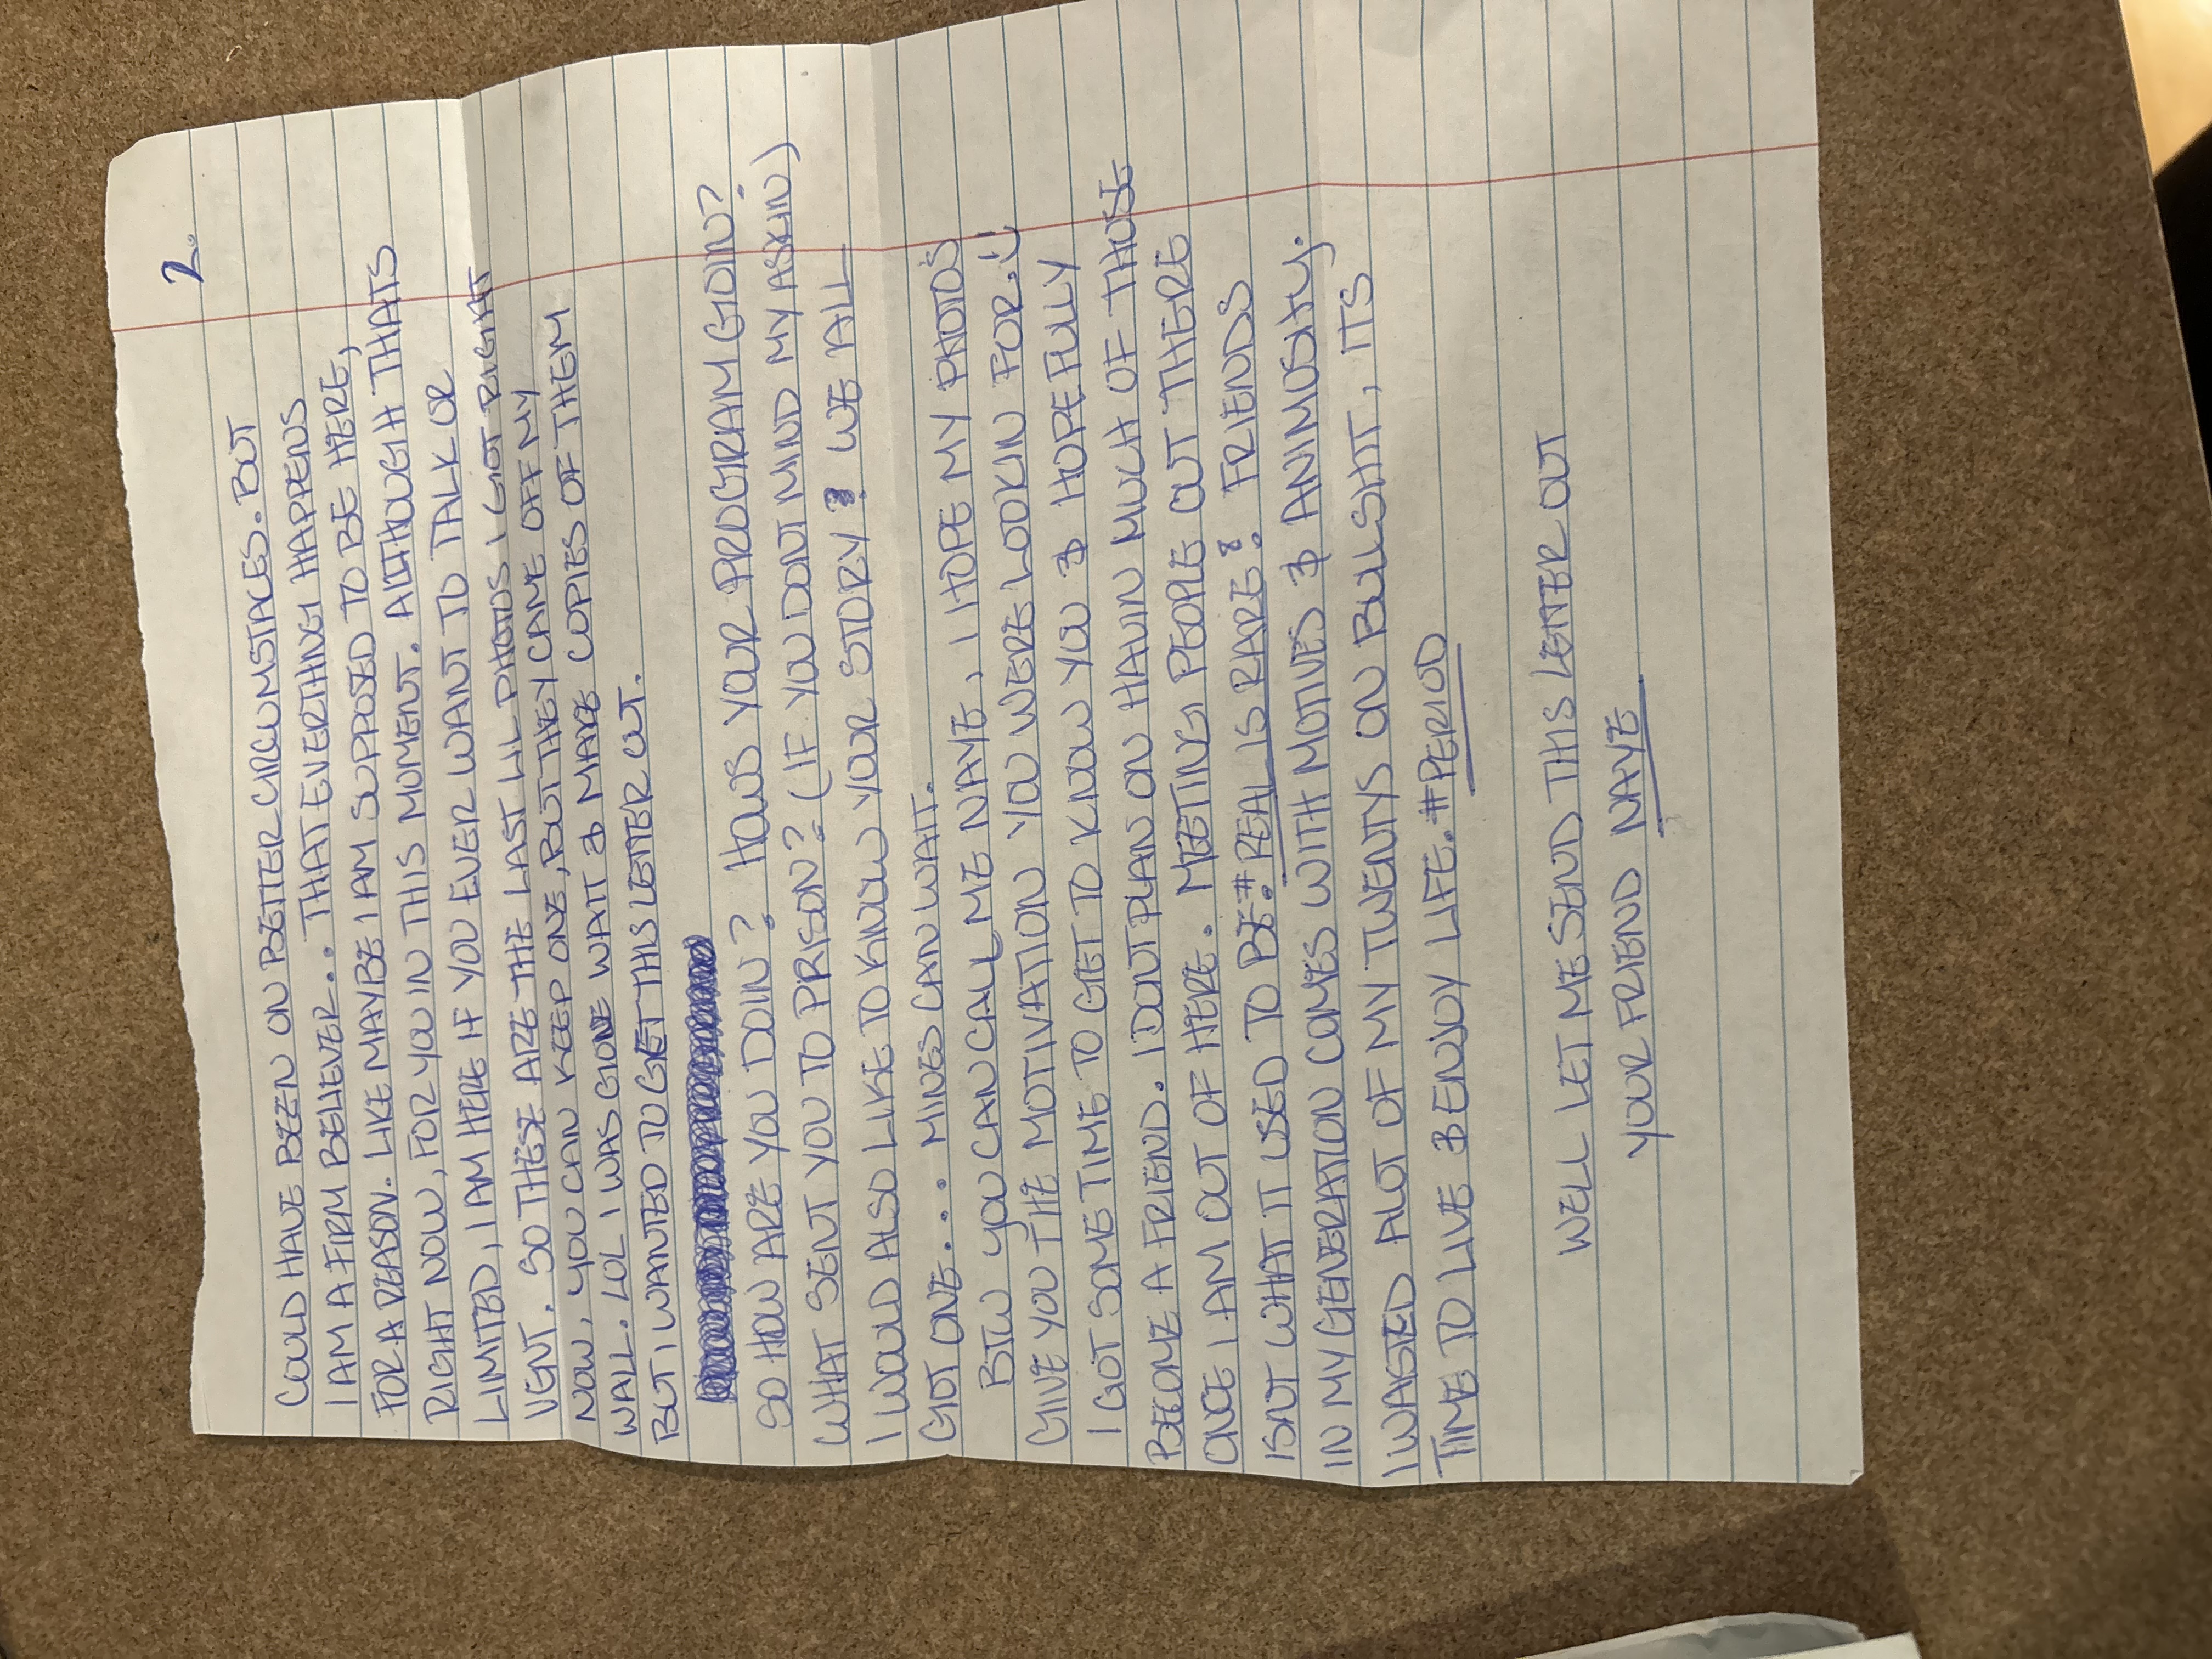 2.
COULD HAVE BEEN ON BETTER CIRCUMSTACES. BUT
I AM A FIRM BELIEVER.. THAT EVERTHNG HAPPENS
FOR A REASON. LIKE MAYBE I AM SUPPOSED TO BE HERE,
RIGHT NOW, FOR YOU IN THIS MOMENT. ALTHOUGH THATS
LIMITED, I AM HERE IF YOU EVER WANT TO TALK OR
VENT. SO THESE ARE THE LAST LIL PHOTOS I GOT RIGHT
NOW, YOU CAN KEEP ONE, BUT THEY CAME OFF MY
WALL. LOL I WAS GONE WAIT & MAKE COPIES OF THEM
BUT I WANTED TO GET THIS LETTER OUT.
SO HOW ARE YOU DOIN? HOWS YOUR PROGRAM GOIN?
WHAT SENT YOU TO PRISON? (IF YOU DONT MIND MY ASKIN)
I WOULD ALSO LIKE TO KNOW YOUR STORY? WE ALL
GOT ONE... MINES CAN WAIT.
BTW YOU CAN CALL ME NAYE, I HOPE MY PHOTOS
GIVE YOU THE MOTIVATION YOU WERE LOOKIN FOR. :)
I GOT SOME TIME TO GET TO KNOW YOU & HOPEFULLY
BECOME A FRIEND. I DONT PLAN ON HAVIN MUCH OF THOSE
ONCE I AM OUT OF HERE. MEETING PEOPLE OUT THERE
ISNT WHAT IT USED TO BE. #REAL IS RARE! FRIENDS
IN MY GENERATION COMES WITH MOTIVES & ANIMOSITY.
I WASTED ALOT OF MY TWENTYS ON BULLSHIT, ITS
TIME TO LIVE & ENJOY LIFE. #PERIOD
WELL LET ME SEND THIS LETTER OUT
YOUR FRIEND NAYE